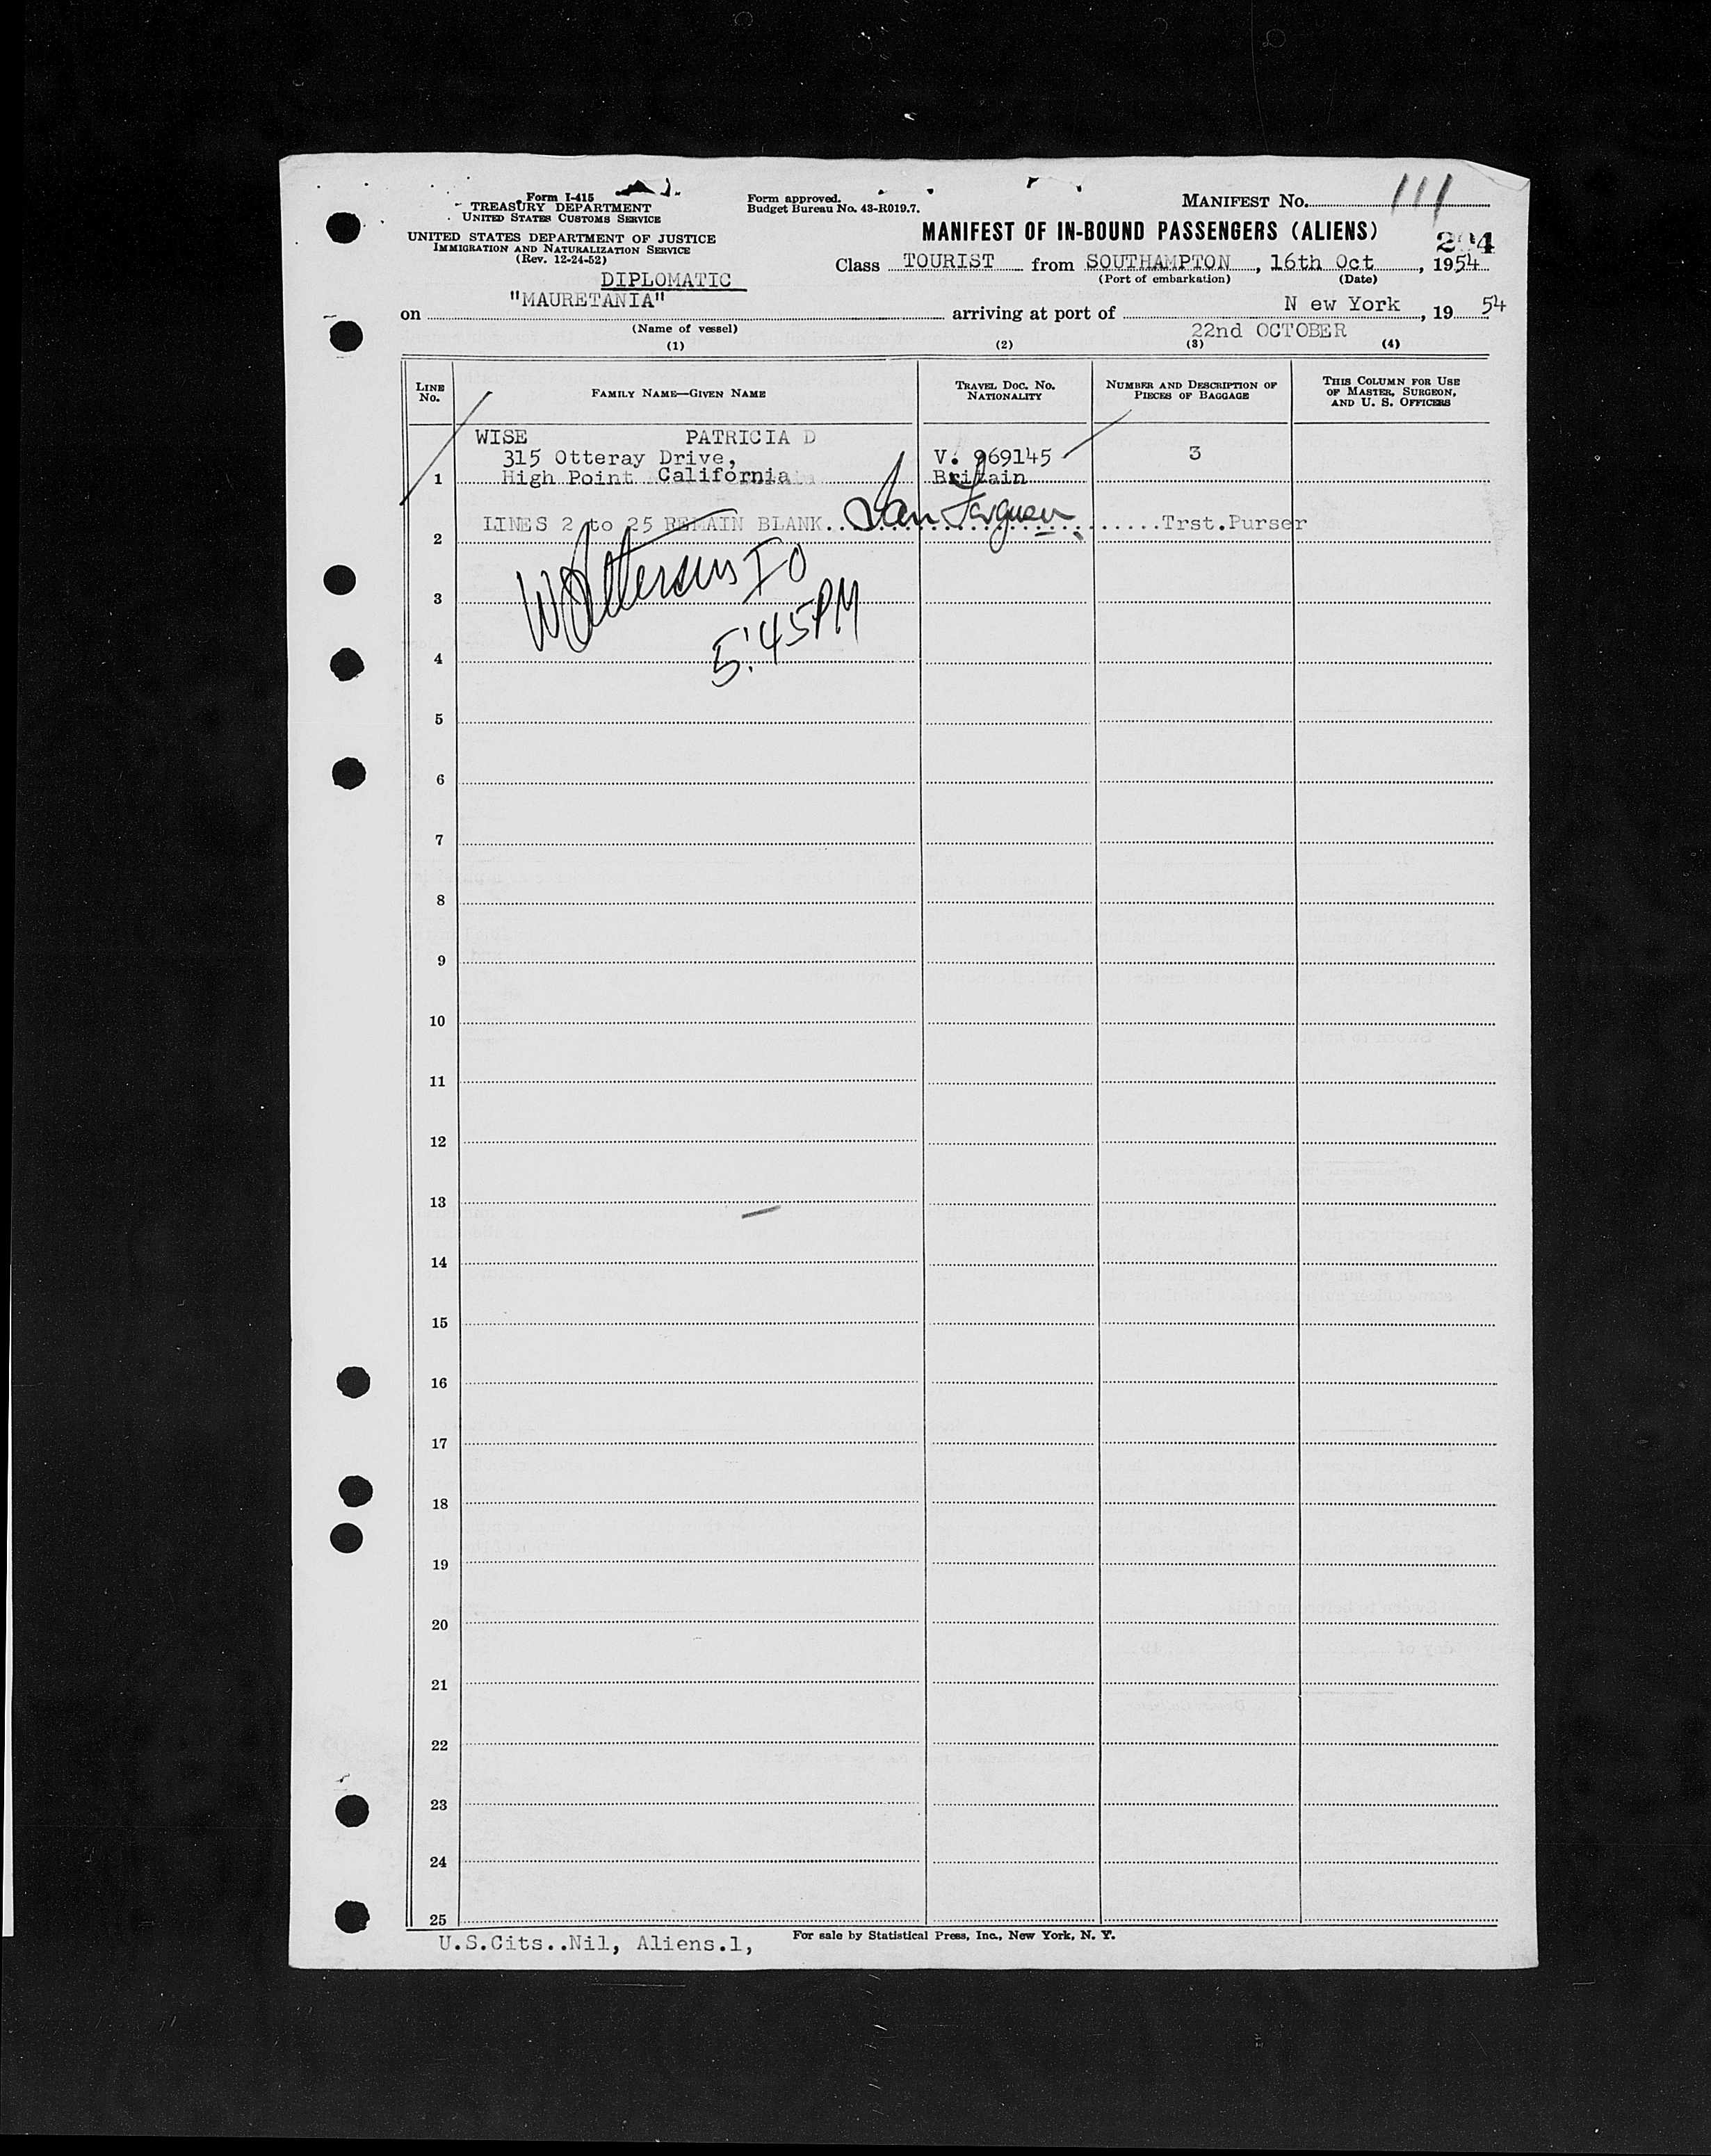 Form I-415
TREASURY DEPARTMENT
UNITED STATES CUSTOMS SERVICE
UNITED STATES DEPARTMENT OF JUSTICE
IMMIGRATION AND NATURALIZATION SERVICE
(Rev. 12-24-52)
Form approved.
Budget Bureau No. 43-R019.7.
MANIFEST No. 111
MANIFEST OF IN-BOUND PASSENGERS (ALIENS)
Class TOURIST from SOUTHAMPTON, 16th Oct, 1954
(Port of embarkation) (Date)
DIPLOMATIC
on "MAURETANIA" arriving at port of N ew York, 19 54
(Name of vessel) 22nd OCTOBER
(1) (2) (3) (4)
LINE No. FAMILY NAME—GIVEN NAME TRAVEL DOC. No. NATIONALITY NUMBER AND DESCRIPTION OF PIECES OF BAGGAGE THIS COLUMN FOR USE OF MASTER, SURGEON, AND U. S. OFFICERS
WISE PATRICIA D
315 Otteray Drive, V. 969145 3
1 High Point California Britain
LINES 2 to 25 REMAIN BLANK Trst.Purser
2
IO
3
5:45PM
4
5
6
7
8
9
10
11
12
13
14
15
16
17
18
19
20
21
22
23
24
25
U.S.Cits..Nil, Aliens.1,
For sale by Statistical Press, Inc., New York, N. Y.